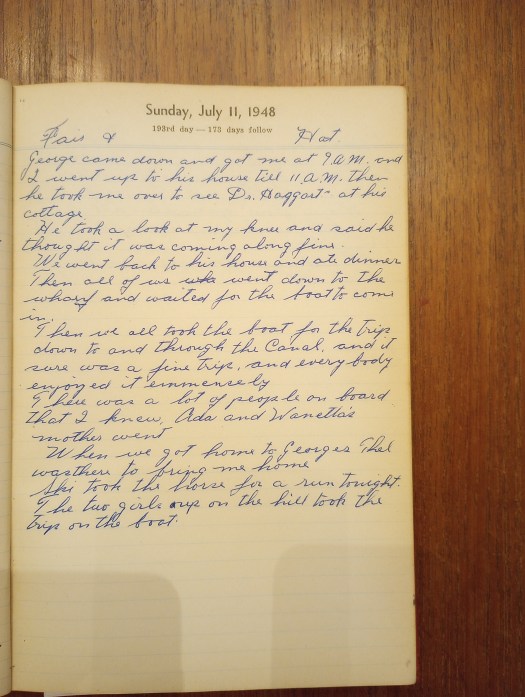 Sunday, July 11, 1948
193rd day — 173 days follow
Fair & Hot.
George came down and got me at 9 A.M. and
I went up to his house till 11 A.M. then
he took me over to see Dr. Haggart at his
cottage
He took a look at my knee and said he
thought it was coming along fine.
We went back to his house and ate dinner
Then all of us went down to the
wharf and waited for the boat to come
in.
Then we all took the boat for the trip
down to and through the Canal, and it
sure was a fine trip, and every body
enjoyed it emmensely
There was a lot of people on board
that I knew, Ada and Wanetta's
mother went
When we got home to Georges Thel
was there to bring me home
Ski took the horse for a run tonight.
The two girls up on the hill took the
trip on the boat.